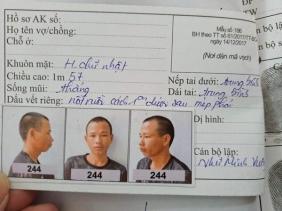 Hồ sơ AK số:
Họ tên vợ/chồng:
Chỗ ở:
Mẫu số 186
BH theo TT số 61/2017/TT-BCA
ngày 14/12/2017
(Nơi dán mã vạch)
Khuôn mặt: H chữ nhật
Chiều cao: 1m 57
Nếp tai dưới: trung bình
Sống mũi: thẳng
Dái tai: trung bình
Dấu vết riêng: nốt ruồi cách 1cm dưới sau mép phải
Dị hình:
Cán bộ lập:
244
244
244